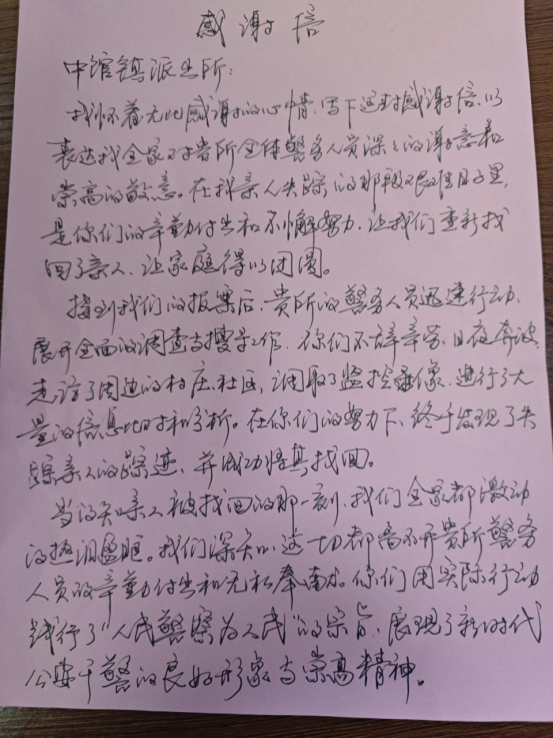 感谢信
中馆镇派出所：
我怀着无比感谢的心情，写下这封感谢信，以
表达我全家对贵所全体警务人员深深的谢意和
崇高的敬意。在我亲人失踪的那段艰难日子里，
是你们的辛勤付出和不懈努力，让我们重新找
回了亲人，让家庭得以团圆。
接到我们的报案后，贵所的警务人员迅速行动，
展开全面的调查与搜寻工作，你们不辞辛劳、日夜奔波，
走访了周边的村庄、社区，调取了监控录像，进行了大
量的信息比对和分析。在你们的努力下，终于发现了失
踪亲人的踪迹，并成功将其找回。
当得知亲人被找回的那一刻，我们全家都激动
的热泪盈眶。我们深知，这一切都离不开贵所警务
人员的辛勤付出和无私奉献。你们用实际行动
践行了“人民警察为人民”的宗旨，展现了新时代
公安干警的良好形象与崇高精神。